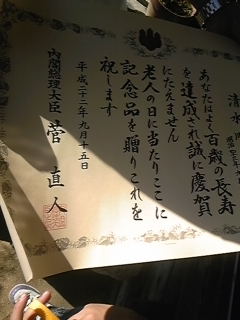 清水
明治
あなたはよく百歳の長寿
を達成され誠に慶賀
にたえません
老人の日に当たりここに
記念品を贈りこれを
祝します
平成二十二年九月十五日
内閣総理大臣 菅 直人